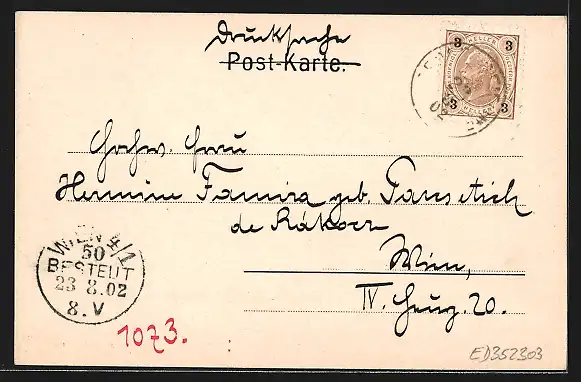 Drucksache
Post-Karte.
3 HELLER 3
3 HELLER 3
Hochw. Frau
Hermine Famira geb.
de Rákosz
Wien,
IV. Heug. 20.
WIEN 4/1
50
BESTELLT
23 8.02
8.V
1073.
ED352303